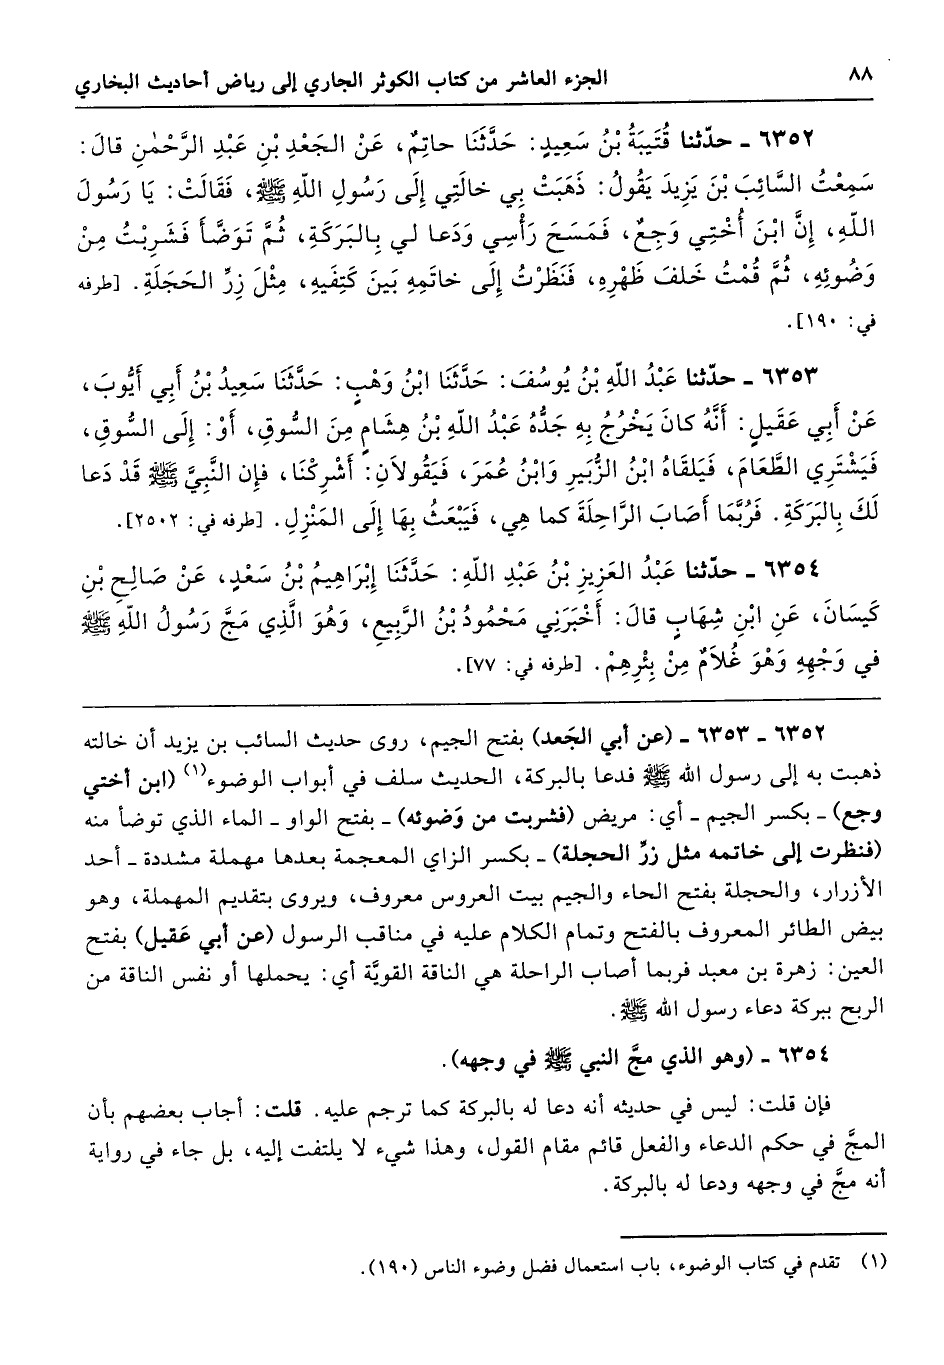 ٨٨ الجزء العاشر من كتاب الكوثر الجاري إلى رياض أحاديث البخاري
٦٣٥٢ ـ حدّثنا قُتَيبَةُ بْنُ سَعِيدٍ: حَدَّثَنَا حاتِمٌ، عَنْ الجَعْدِ بْنِ عَبْدِ الرَّحْمٰنِ قالَ:
سَمِعْتُ السَّائِبَ بْنَ يَزِيدَ يَقُولُ: ذَهَبَتْ بِي خالَتِي إِلَى رَسُولِ اللّهِ ﷺ، فَقَالَتْ: يَا رَسُولَ
اللّهِ، إِنَّ ابْنَ أُخْتِي وَجِعٌ، فَمَسَحَ رَأْسِي وَدَعا لي بِالبَرَكَةِ، ثُمَّ تَوَضَّأَ فَشَرِبْتُ مِنْ
وَضُوئِهِ، ثُمَّ قُمْتُ خَلفَ ظَهْرِهِ، فَنَظَرْتُ إِلَى خاتَمِهِ بَينَ كَتِفَيهِ، مِثْلَ زِرِّ الحَجَلَةِ. [طرفه
في: ١٩٠].
٦٣٥٣ ـ حدّثنا عَبْدُ اللّهِ بْنُ يُوسُفَ: حَدَّثَنَا ابْنُ وَهْبٍ: حَدَّثَنَا سَعِيدُ بْنُ أَبِي أَيُّوبَ،
عَنْ أَبِي عَقِيلٍ: أَنَّهُ كانَ يَخْرُجُ بِهِ جَدُّهُ عَبْدُ اللّهِ بْنُ هِشَامٍ مِنَ السُّوقِ، أَوْ: إِلَى السُّوقِ،
فَيَشْتَرِي الطَّعَامَ، فَيَلقَاهُ ابْنُ الزُّبَيرِ وَابْنُ عُمَرَ، فَيَقُولاَنِ: أَشْرِكْنَا، فَإِن النَّبِيَّ ﷺ قَدْ دَعا
لَكَ بِالبَرَكَةِ. فَرُبَّمَا أَصَابَ الرَّاحِلَةَ كما هِي، فَيَبْعَثُ بِهَا إِلَى المَنْزِلِ. [طرفه في: ٢٥٠٢].
٦٣٥٤ ـ حدّثنا عَبْدُ العَزِيزِ بْنُ عَبْدِ اللّهِ: حَدَّثَنَا إِبْرَاهِيمُ بْنُ سَعْدٍ، عَنْ صَالِحِ بْنِ
كَيسَانَ، عَنِ ابْنِ شِهَابٍ قالَ: أَخْبَرَنِي مَحْمُودُ بْنُ الرَّبِيعِ، وَهُوَ الَّذِي مَجَّ رَسُولُ اللّهِ ﷺ
في وَجْهِهِ وَهْوَ غُلاَمٌ مِنْ بِئْرِهِمْ. [طرفه في: ٧٧].
٦٣٥٢ ـ ٦٣٥٣ ـ (عن أبي الجَعد) بفتح الجيم، روى حديث السائب بن يزيد أن خالته
ذهبت به إلى رسول الله ﷺ فدعا بالبركة، الحديث سلف في أبواب الوضوء(١) (ابن أختي
وجع) ـ بكسر الجيم ـ أي: مريض (فشربت من وَضوئه) ـ بفتح الواو ـ الماء الذي توضأ منه
(فنظرت إلى خاتمه مثل زرِّ الحجلة) ـ بكسر الزاي المعجمة بعدها مهملة مشددة ـ أحد
الأزرار، والحجلة بفتح الحاء والجيم بيت العروس معروف، ويروى بتقديم المهملة، وهو
بيض الطائر المعروف بالفتح وتمام الكلام عليه في مناقب الرسول (عن أبي عَقيل) بفتح
العين: زهرة بن معبد فربما أصاب الراحلة هي الناقة القويَّة أي: يحملها أو نفس الناقة من
الربح ببركة دعاء رسول الله ﷺ.
٦٣٥٤ ـ (وهو الذي مجَّ النبي ﷺ في وجهه).
فإن قلت: ليس في حديثه أنه دعا له بالبركة كما ترجم عليه. قلت: أجاب بعضهم بأن
المجَّ في حكم الدعاء والفعل قائم مقام القول، وهذا شيء لا يلتفت إليه، بل جاء في رواية
أنه مجَّ في وجهه ودعا له بالبركة.
(١) تقدم في كتاب الوضوء، باب استعمال فضل وضوء الناس (١٩٠).